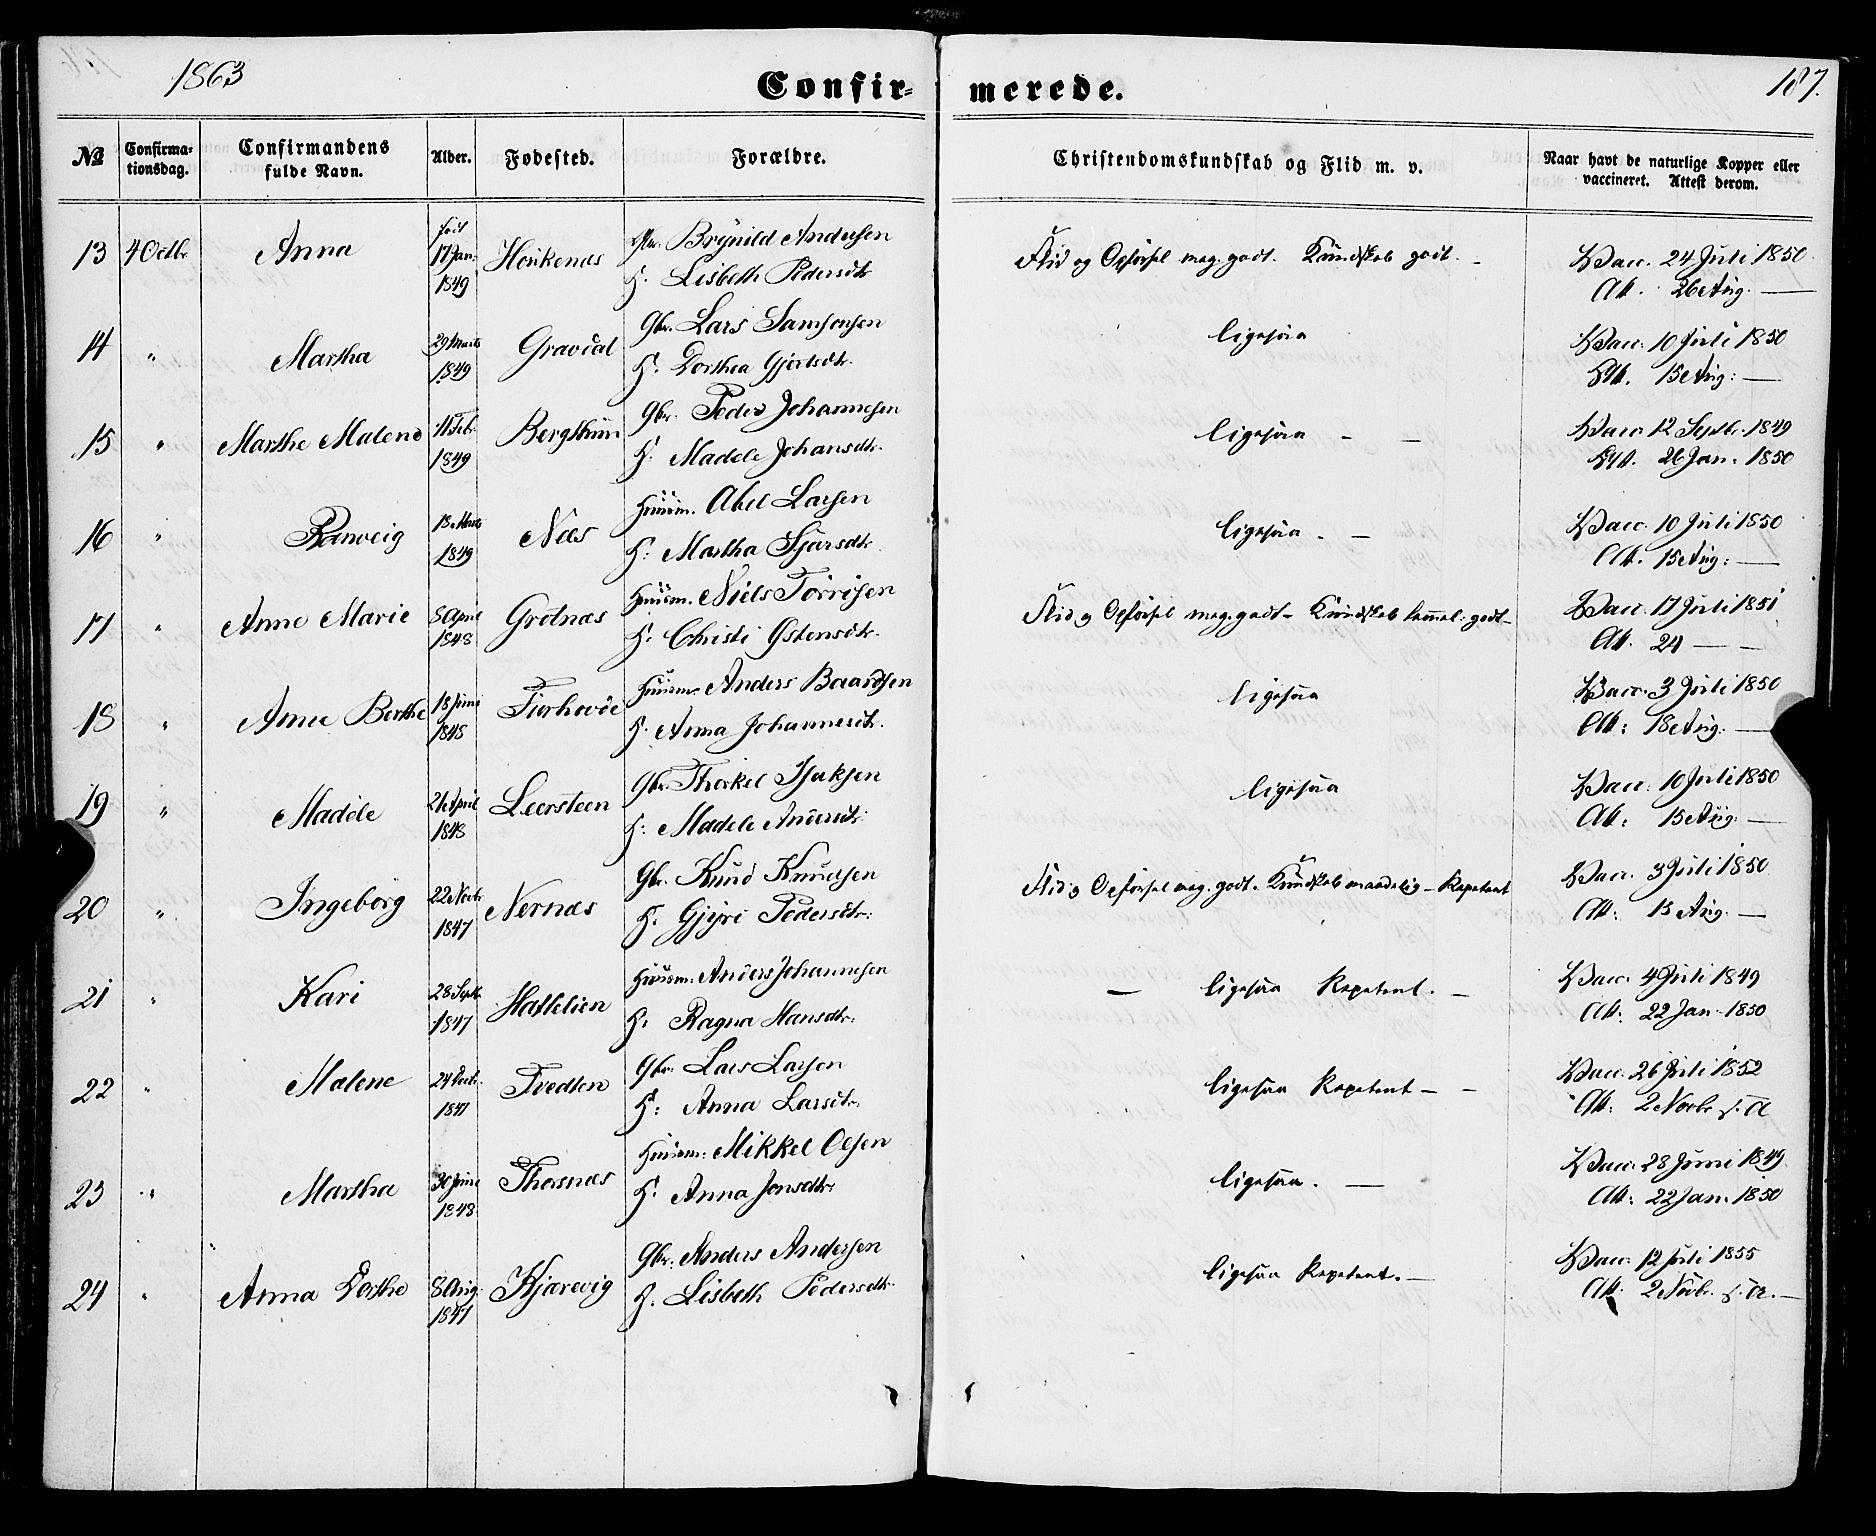 1863
Confir-
merede.
187.
No
Confirma-
tionsdag.
Confirmandens
fulde Navn.
Alder.
Fødested.
Forældre.
Christendomskundskab og Flid m. v.
Naar havt de naturlige Kopper eller
vaccineret. Attest derom.
13 4 Octbr Anna født 17 Jan: 1849 Høikenæs Brynild Andersen
H. Lisbeth Pedersdtr
Flid og Opførsel meg. godt. Kundskab godt. -
Vacc. 24 Juli 1850
Att. 26 Aug. —
14 " Martha 29 Marts 1849 Gravdal Gbr. Lars Samsonsen
H. Dorthea Gjertsdtr.
ligesaa
Vacc. 10 Juli 1850
Att. 15 Aug: —
15 " Marthe Malene 11 Febr. 1849 Bergsthun Gbr. Peder Johannesen
H. Madele Johansdtr.
ligesaa - -
Vacc 12 Septbr. 1849
Att. 26 Jan. 1850
16 " Ranveig 18 Marts 1849 Næs Huusm. Abel Larsen
H: Martha Sjursdtr.
ligesaa. -
Vacc. 10 Juli 1850
Att. 15 Aug: —
17 " Anne Marie 8 April 1848 Grotnæs Huusm. Niels Torrisen
H: Christi Østensdtr.
Flid og Opførsel meg. godt - Kundskab temmel: godt -
Vacc. 17 Juli 1851
Att. 24 — -
18 " Anne Berthe 18 Juni 1848 Huusm. Anders Baardsen
H. Anna Johannesdtr.
ligesaa
Vacc. 3 Juli 1850
Att: 18 Aug. —
19 " Madele 21 April 1848 Leersteen Gbr. Thorkel Isaksen
H: Madele Andersdtr
ligesaa
Vacc. 10 Juli 1850
Att: 15 Aug. —
20 " Ingeborg 22 Novbr 1847 Nernæs Gbr. Knud Knudsen
H: Gjyri Pedersdtr:
Flid og Opførsel meg. godt. Kundskab maadelig - Repetent
Vacc. 3 Juli 1850
Att: 15 Aug. —
21 " Kari 28 Septb. 1847 Hattelien Huusm. Anders Johannesen
H: Ragna Hansdtr:
— ligesaa Repetent. -
Vacc. 4 Juli 1849
Att: 22 Jan. 1850
22 " Malene 1847 Tvedten Gbr: Lars Larsen
H: Anna Larsdtr.
ligesaa Repetent - -
Vacc. 26 Juli 1852
Att: 2 Novbr s. A
23 " Martha 30 Juni 1848 Thorsnæs Huusm: Mikkel Olsen
H: Anna Jonsdtr:
ligesaa. —
Vacc. 28 Juni 1849
Att: 22 Jan. 1850
24 " Anna Dorthe 8 Aug. 1847 Kjærevig Gbr. Anders Andersen
H. Lisbeth Pedersdtr.
ligesaa Repetent. -
Vacc. 12 Juli 1855
Att. 2 Novbr. s. A. -